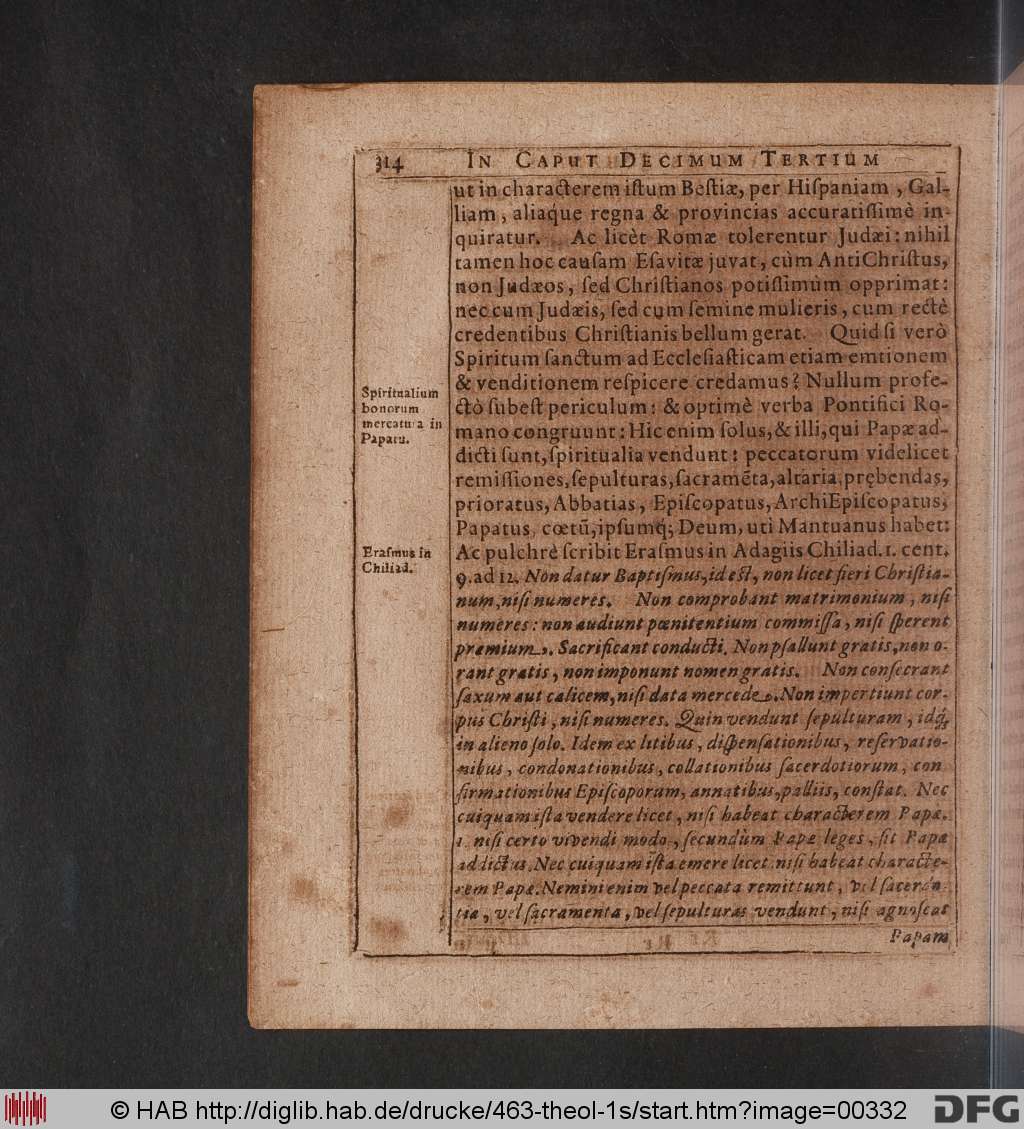 314 IN CAPUT DECIMUM TERTIUM
ut in characterem iſtum Beſtiæ, per Hiſpaniam, Gal-
liam, aliaque regna & provincias accuratiſſimè in-
quiratur. Ac licèt Romæ tolerentur Judæi: nihil
tamen hoc cauſam Eſavitæ juvat, cùm AntiChriſtus,
non Judæos, ſed Chriſtianos potiſſimùm opprimat:
nec cum Judæis, ſed cum ſemine mulieris, cum rectè
credentibus Chriſtianis bellum gerat. Quid ſi verò
Spiritum ſanctum ad Eccleſiaſticam etiam emtionem
& venditionem reſpicere credamus? Nullum profe-
ctò ſubeſt periculum: & optimè verba Pontifici Ro-
mano congruunt: Hic enim ſolus, & illi, qui Papæ ad-
dicti ſunt, ſpiritualia vendunt: peccatorum videlicet
remiſſiones, ſepulturas, ſacramẽta, altaria, prębendas,
prioratus, Abbatias, Epiſcopatus, ArchiEpiſcopatus,
Papatus, cœtũ, ipſumq́; Deum, uti Mantuanus habet:
Ac pulchrè ſcribit Eraſmus in Adagiis Chiliad. 1. cent.
9. ad 12. Non datur Baptiſmus, id eſt, non licet fieri Chriſtia-
num, niſi numeres. Non comprobant matrimonium, niſi
numeres: non audiunt pœnitentium commiſſa, niſi ſperent
præmium. Sacrificant conducti. Non pſallunt gratis, non o-
rant gratis, non imponunt nomen gratis. Non conſecrant
ſaxum aut calicem, niſi data mercede. Non impertiunt cor-
pus Chriſti, niſi numeres. Quin vendunt ſepulturam, idq́;
in alieno ſolo. Idem ex litibus, diſpenſationibus, reſervatio-
nibus, condonationibus, collationibus ſacerdotiorum, con
firmationibus Epiſcoporum, annatibus, palliis, conſtat. Nec
cuiquam iſta vendere licet, niſi habeat characterem Papæ.
1. niſi certo vivendi modo, ſecundùm Papæ leges, ſit Papæ
addictus. Nec cuiquam iſta emere licet niſi habeat characte-
rem Papæ. Nemini enim vel peccata remittunt, vel ſacerdo-
tia, vel ſacramenta, vel ſepulturas vendunt, niſi agnoſcat
Papam
Spiritualium
bonorum
mercatura in
Papatu.
Eraſmus in
Chiliad.
© HAB http://diglib.hab.de/drucke/463-theol-1s/start.htm?image=00332
DFG